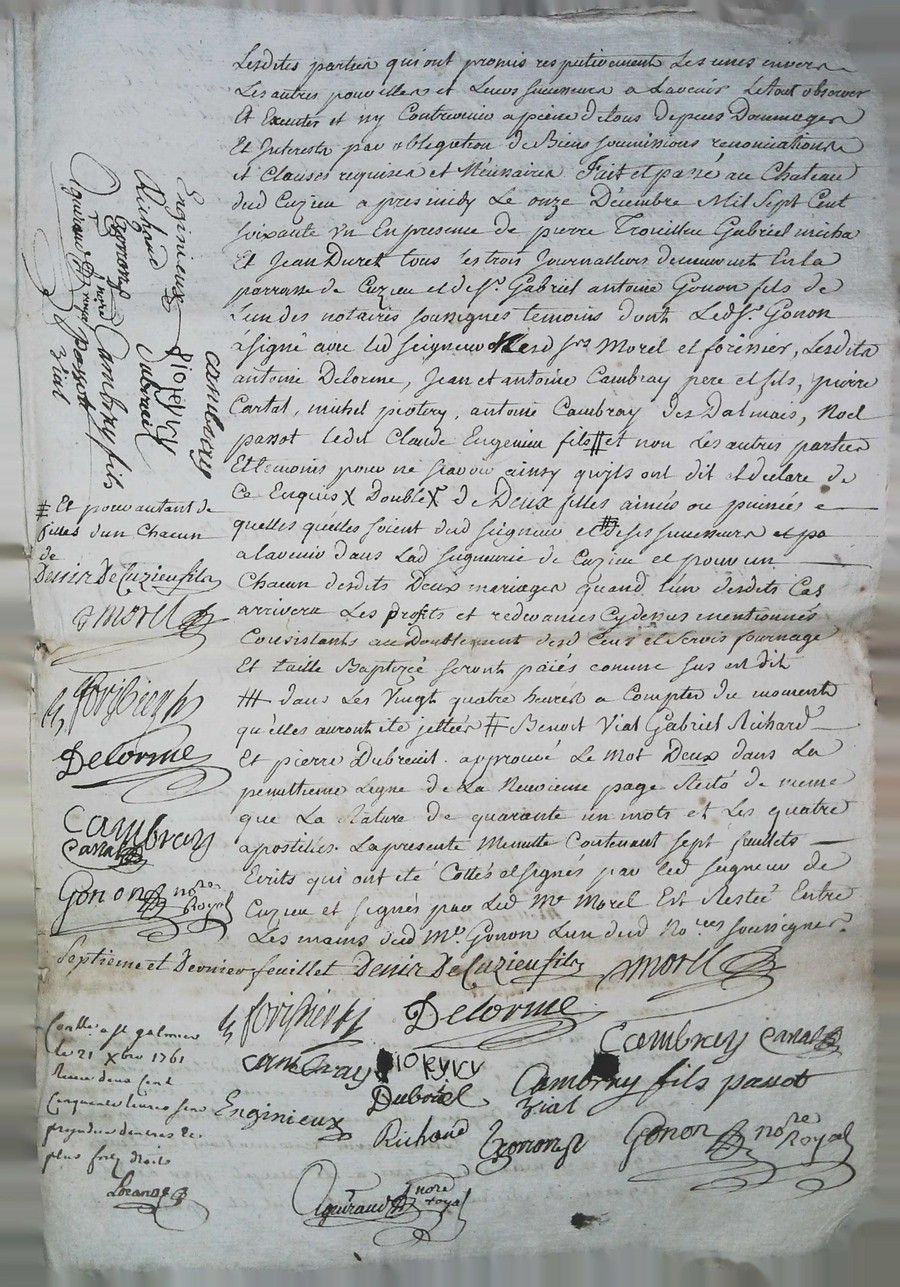 Lesdites parties qui ont promis respectivement Les unes envers
Les autres pour elles et Leurs successeurs a Lavenir Le tout observer
Et Executer et ny Contrevenir a peine de tous depens Dommages
Et Interests par obligation de Biens soumissions renonciations
et Clauses requises et Nécessaires Fait et passé au Chateau
dud Cuzieu apres midy Le onze Décembre Mil Sept Cent
soixante un En presence de pierre Trouilleu Gabriel micha
Et Jean Duret tous les trois Journalliers demeurants En la
parroisse de Cuzieu et de Sr. Gabriel antoine Gonon fils de
L'un des notaires soussignes temoins dont Led Sr. Gonon
a signé avec led seigneur Lesd Srs Morel et forissier, Lesdits
antoine Delorme, Jean et antoine Cambray pere et fils, pierre
Cartal, michel piotery, antoine Cambray des Dalmais, Noel
passot ledit Claude Engenieu fils ⋕ et non Les autres parties
Et temoins pour ne sçavoir ainsy qu'ils ont dit et declaré de
Ce Enquis X Double X de Deux filles ainées ou puinées
quelles qu'elles soient dud seigneur et de ses successeurs
a lavenir dans Lad seigneurie de Cuzieu et pour un
Chacun desdits Deux mariages quand l'un desdits Cas
arrivera Les profits et redevances Cydessus mentionnés
Consistants au Doublement desd Cens et Servis fournage
Et taille Baptizée seront paiés comme sus est dit
dans Les Vingt quatre heures a Compter du moment
qu'elles auront été jettées ⋕ Benoit Vial Gabriel Richard
Et pierre Dubreuil. approuvé Le Mot Deux dans La
penultieme Ligne de La Neuvieme page Resté de meme
que La Rature de quarante un mots et Les quatre
apostilles. La presente Minutte Contenant Sept feuillets
Ecrits qui ont été Cottés et signés par led seigneur de
Cuzieu et signés par Led Me Morel Est Restée Entre
Les mains dud Me. Gonon L'un dud Nores soussignes
Septieme et Dernier feuillet Denis DeCuzieu fils Morel
forissier Delorme
Cambray Cartal
Cambray piotery
Dubreil Cambray fils passot
Vial
Enginieux Richard Gonon Gonon nore Royal
Aguiraud nore royal
⋕ Et pour autant de
filles d'un Chacun
de
Denis DeCuzieu fils
Morel
forissier
Delorme
Cambray
Cartal
Gonon nore
Royal
Controllé a st galmier
le 21 Xbre 1761
Reçu deux Cent
Cinquante livres sans
prejudice
plus forts droits
Enginieux
Cambray
Richard
piotery
Dubreil
Gonon
Cambray fils
Aguiraud nore royal
passot
Vial